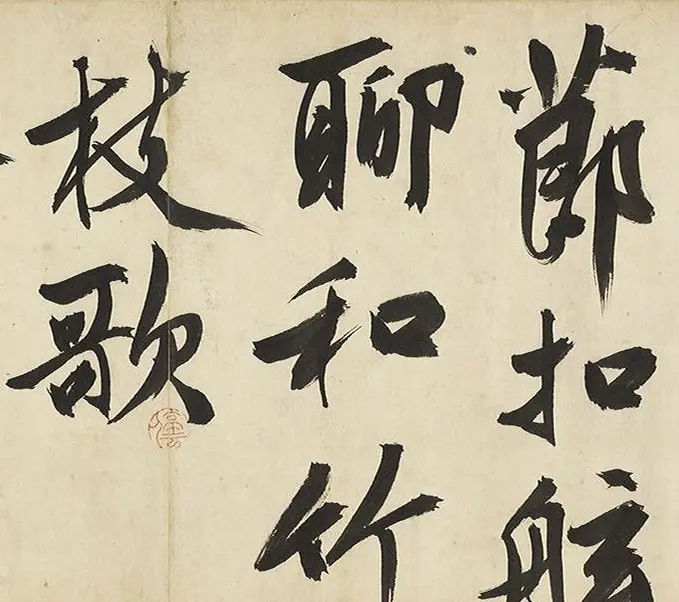 節扣舷
聊和竹
枝歌